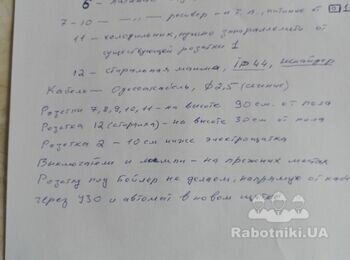 7-10 — „ — „ — ресивер - и т. п., питание от
11 - холодильник, нужно запараллелить от
существующей розетки 1
12 - стиральная машина, iP44, шнайдер
Кабель - Одессакабель, Ф2,5 (сечение)
Розетки 7, 8, 9, 10, 11 - на высоте 90 см. от пола
Розетка 12 (стиралка) - на высоте 30 см от пола
Розетка 2 - 10 см ниже электрощитка
Выключатели и лампы - на прежних местах
Розетку под Бойлер не делаем, напрямую от
через УЗО и автомат в новом щитке
Rabotniki.UA